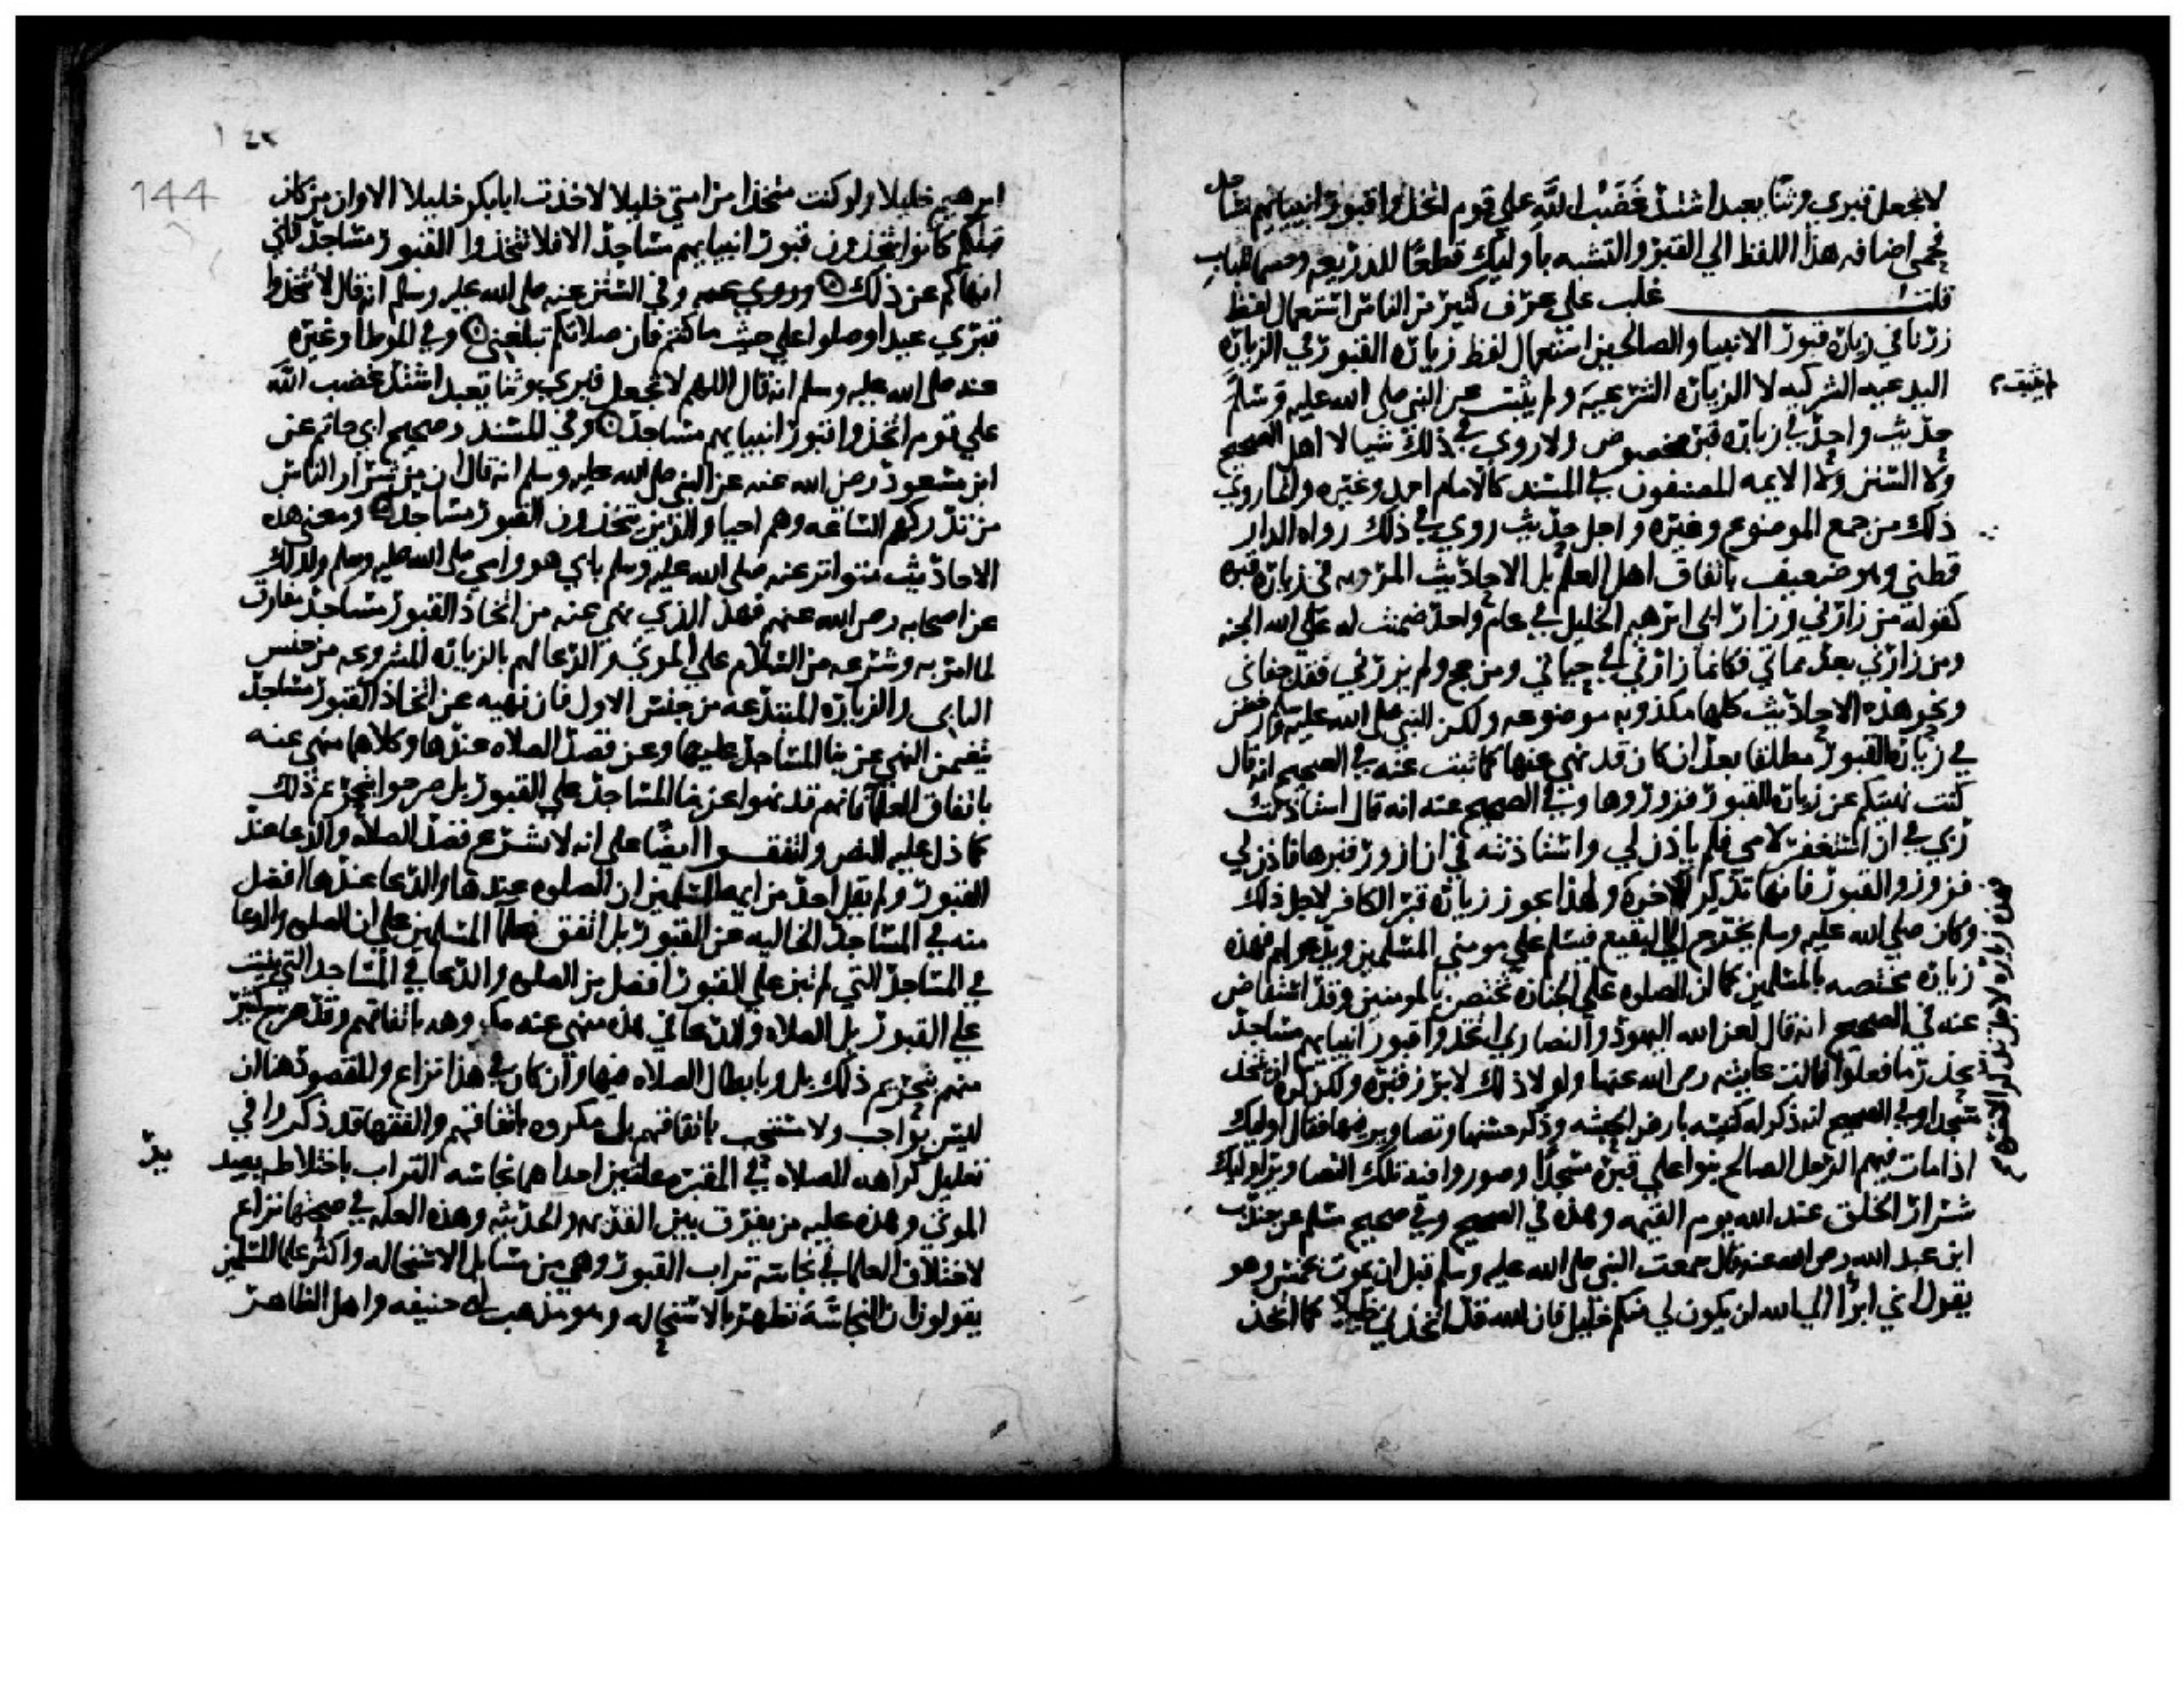 لا تجعل قبري وثنا يعبد اشتد غضب الله علي قوم اتخذوا قبور انبيايهم مساجد
فحمى اضافه هذا اللفظ الي القبر والتشبه باوليك قطعا للذريعه وحسما للباب
قلت غلب على عرف كثير من الناس استعمال لفظ
زرنا في زيارة قبور الانبيا والصالحين استعمال لفظ زيارة القبور في الزيارة
البدعيه الشركيه لا الزيارة الشرعيه ولم يثبت عن النبي صلى الله عليه وسلم
حديث واحد في زيارة قبر مخصوص ولا روي في ذلك شيا لا اهل الصحيح
ولا السنن ولا الايمه المصنفون في المسند كالامام احمد وغيره وانما روي
ذلك من جمع الموضوع وغيره واجل حديث روي في ذلك رواه الدار
قطني وهو ضعيف باتفاق اهل العلم بل الاحاديث المرويه في زيارة قبره
كقوله من زارني وزار ابي ابرهيم الخليل في عام واحد ضمنت له على الله الجنه
ومن زارني بعد مماتي فكانما زارني في حياتي ومن حج ولم يزرني فقد جفاني
ونحو هذه الاحاديث كلها مكذوبه موضوعه ولكن النبي صلى الله عليه وسلم رخص
في زيارة القبور مطلقا بعد ان كان قد نهى عنها كما ثبت عنه في الصحيح انه قال
كنت نهيتكم عن زيارة القبور فزوروها وفي الصحيح عنه انه قال استاذنت
ربي في ان استغفر لامي فلم ياذن لي واستاذنته في ان ازور قبرها فاذن لي
فزوروا القبور فانها تذكر الاخرة ولهذا يجوز زيارة قبر الكافر لاجل ذلك
وكان صلى الله عليه وسلم يخرج الى البقيع فيسلم على موتي المسلمين ويدعو لهم فهذه
زيارة مختصه بالمسلمين كما ان الصلوه على الجنازه تختص بالمومنين وقد استفاض
عنه في الصحيح انه قال لعن الله اليهود والنصاري اتخذوا قبور انبيايهم مساجد
يحذر ما فعلوا قالت عايشه رضي الله عنها ولولا ذلك لابرز قبره ولكن كره ان يتخذ
مسجدا وفي الصحيح انه ذكر له كنيسه بارض الحبشه وذكر حسنها وتصاوير فيها فقال اوليك
اذا مات فيهم الرجل الصالح بنوا على قبره مسجدا وصوروا فيه تلك التصاوير اوليك
شرار الخلق عند الله يوم القيمه وهذه في الصحيح وفي صحيح مسلم عن جندب
ابن عبد الله رضي الله عنه قال سمعت النبي صلى الله عليه وسلم قبل ان يموت بخمس وهو
يقول اني ابرا الي الله ان يكون لي منكم خليل فان الله قد اتخذني خليلا كما اتخذ
١٤٤
144
ابرهيم خليلا ولو كنت متخذا من امتي خليلا لاتخذت ابابكر خليلا الا وان من كان
قبلكم كانوا يتخذون قبور انبيايهم مساجد الا فلا تتخذوا القبور مساجد فاني
انهاكم عن ذلك وفي السنن عنه صلى الله عليه وسلم انه قال لا تتخذوا
قبري عيدا وصلوا علي حيث ما كنتم فان صلاتكم تبلغني وفي الموطا وغيره
عنه صلى الله عليه وسلم انه قال اللهم لا تجعل قبري وثنا يعبد اشتد غضب الله
علي قوم اتخذوا قبور انبيايهم مساجد وفي المسند وصحيح ابي حاتم عن
ابن مسعود رضي الله عنه عن النبي صلى الله عليه وسلم انه قال ان من شرار الناس
من تدركهم الساعه وهم احيا والذين يتخذون القبور مساجد ومعنى هذه
الاحاديث متواتر عنه صلى الله عليه وسلم بابي هو وامي صلى الله عليه وسلم وكذلك
عن اصحابه رضي الله عنهم فهذا الذي نهى عنه من اتخاذ القبور مساجد مفارق
لما امر به وشرعه من السلام علي الموتى والدعا لهم بالزياره المشروعه من جنس
الثاني والزياره المبتدعه من جنس الاول فان نهيه عن اتخاذ القبور مساجد
يتضمن النهي عن بنا المساجد عليها وعن قصد الصلاه عندها وكلاهما منهي عنه
باتفاق العلما فانهم قد نهوا عن بنا المساجد علي القبور بل صرحوا بتحريم ذلك
كما دل عليه النص واتفقوا ايضا على انه لا يشرع قصد الصلاه والدعا عند
القبور ولم يقل احد من ايمه المسلمين ان الصلوه عندها والدعا عندها افضل
منه في المساجد الخاليه عن القبور بل اتفق علما المسلمين على ان الصلوه والدعا
في المساجد التي لم تبن علي القبور افضل من الصلوه والدعا في المساجد التي بنيت
على القبور بل الصلاه والدعا في هذه منهي عنه مكروهه باتفاقهم وقد صرح كثير
منهم بتحريم ذلك بل وبابطال الصلاه فيها وان كان في هذا نزاع والمقصود هنا ان
ليس بواجب ولا مستحب باتفاقهم بل مكروه باتفاقهم والفقها قد ذكروا في
تعليل كراهه الصلاه في المقبره علتين احداهما نجاسه التراب باختلاطه بصديد
الموتى وهذه عليه من يفرق بين القديمه والحديثه وهذه العله في صحتها نزاع
لاختلاف العلما في نجاسه تراب القبور وهي من مسايل الاستحاله واكثر علما المسلمين
يقولون ان النجاسه تطهر بالاستحاله وهو مذهب ابي حنيفه واهل الظاهر